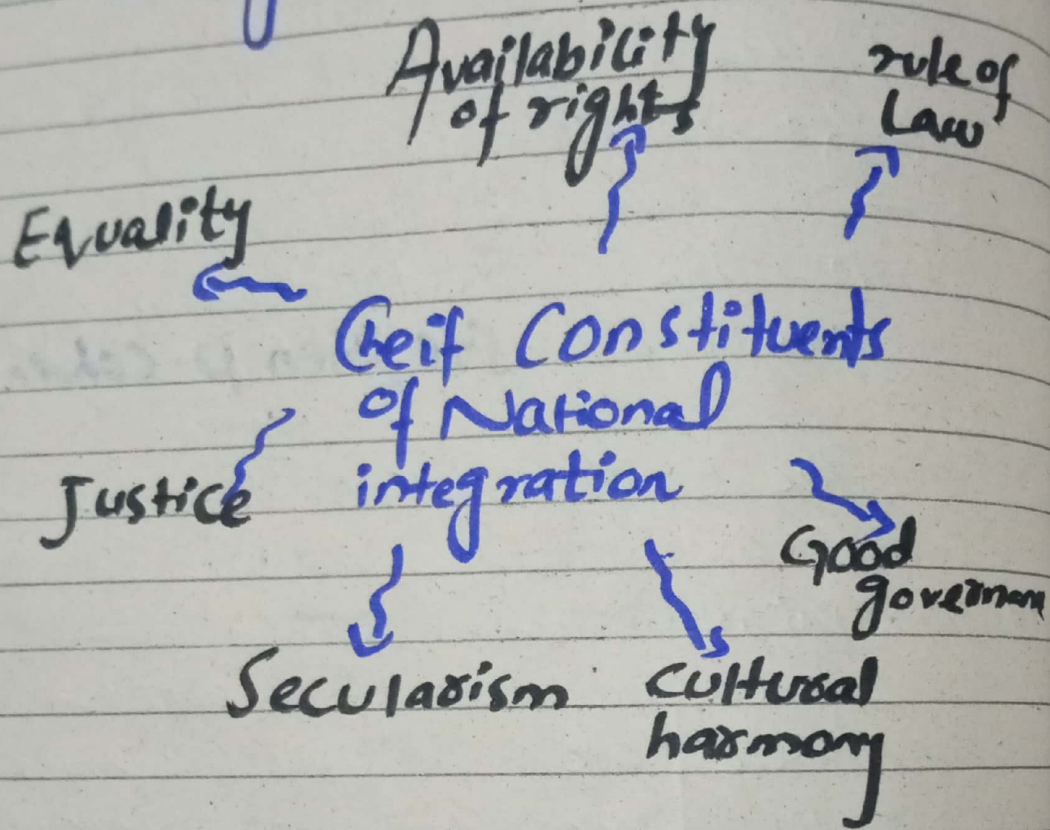 Availability
of rights
rule of
Law
Equality
Cheif Constituents
of National
integration
Justice
Good
Secularism
Cultural
harmony